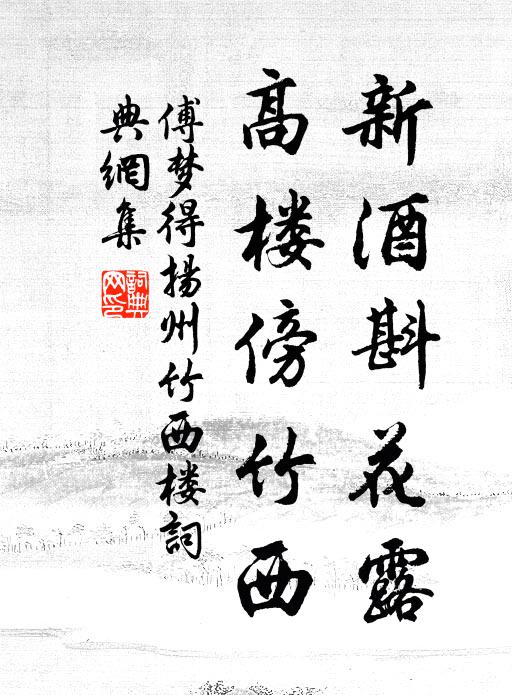 新酒斟花露
高楼傍竹西
傅梦得揚州竹西楼詞
典網集
詞典
网印